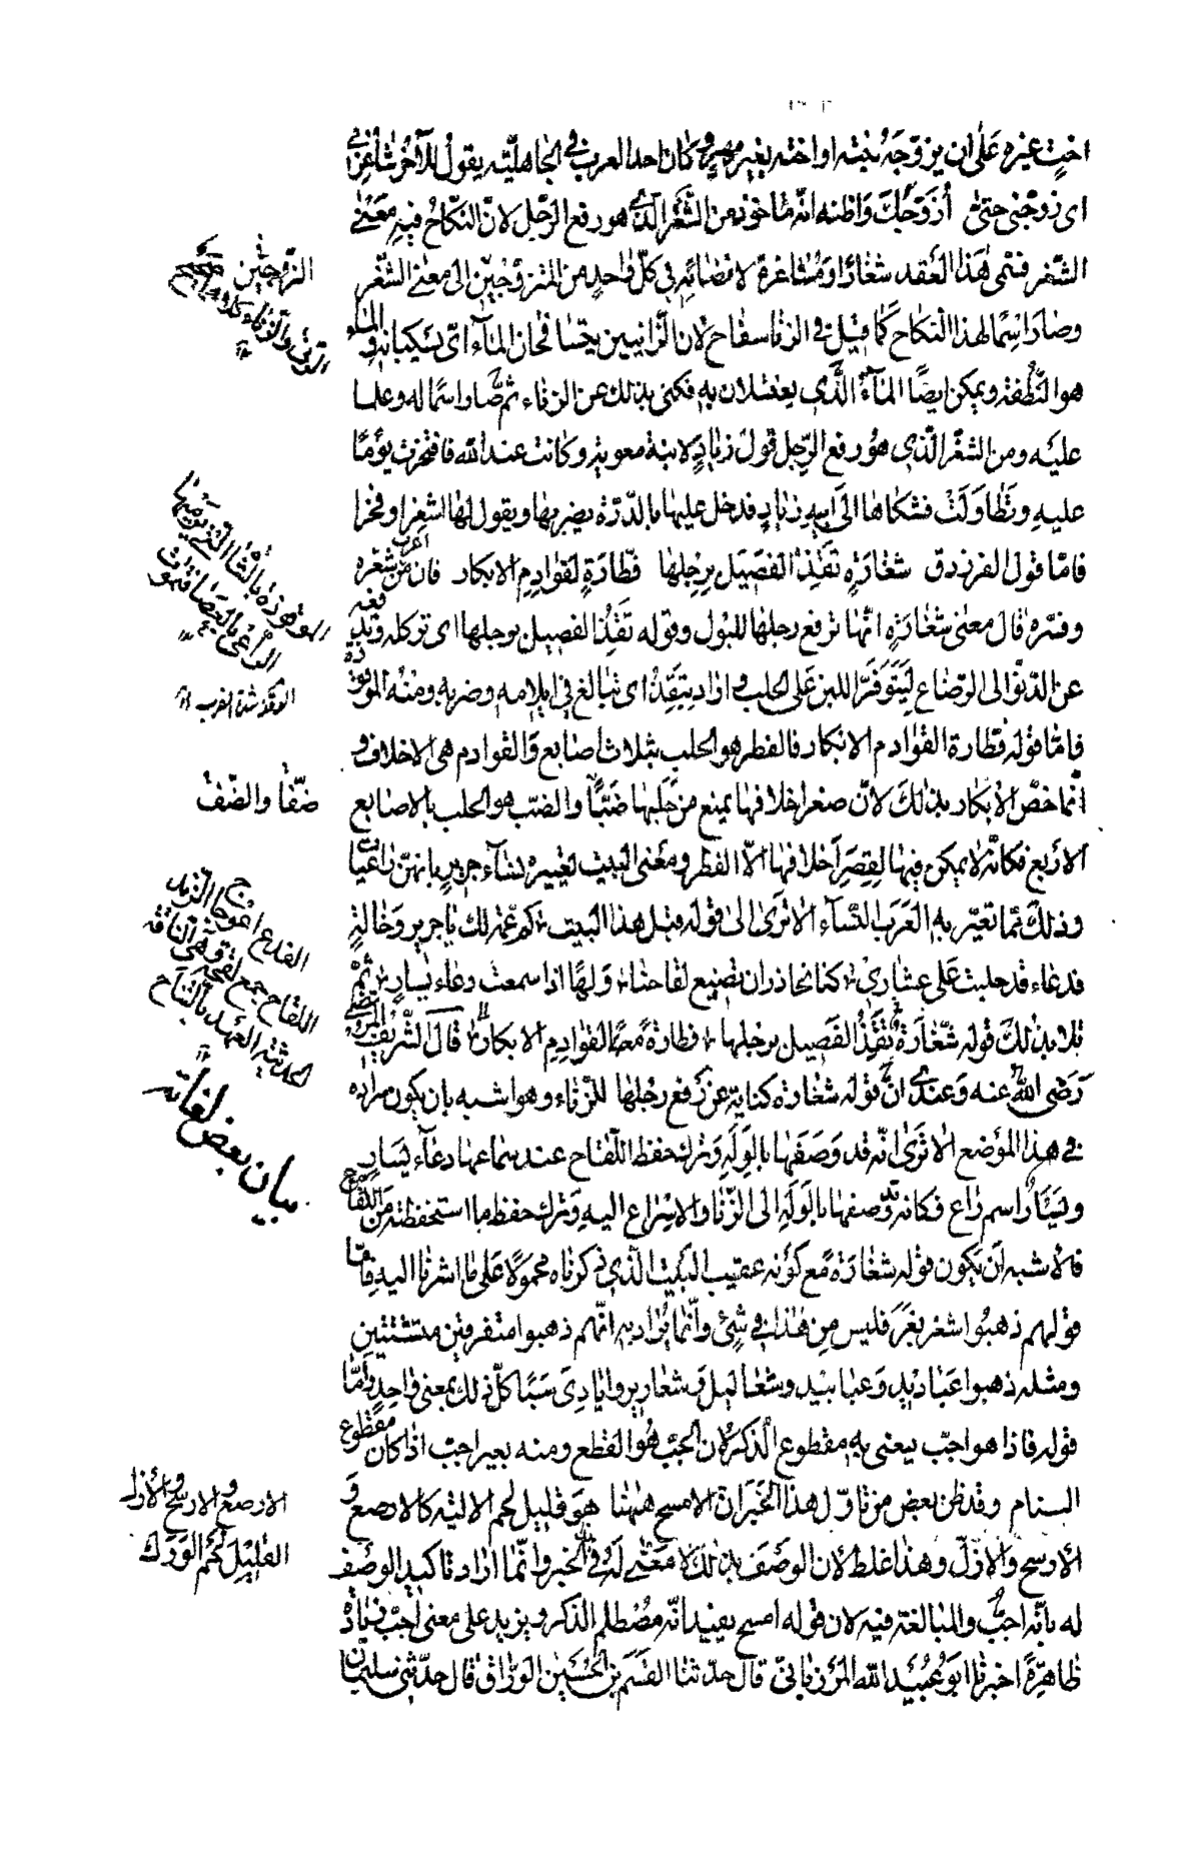 اخت غيره على ان يزوجه بنته او اخته بغير مهر وكان احد العرب في الجاهلية يقول للآخر شاغرني
اى زوجنى حتى أزوجك واظنه انه مأخوذ من الشغر الذى هو رفع الرجل لان النكاح فيه معنى
الشغر فسمى هذا العقد شغارا ومشاغرة لافضائه فى كل واحد من المتزوجين الى معنى الشغر
وصار اسما لهذا النكاح كما قيل فى الزنا سفاح لان الزانيين يتسافحان الماء اى يسكبانه والماء
هو النطفة ويمكن ايضا الماء الذى يغتسلان به فكنى بذلك عن الزناء ثم صار اسما له وعلما
عليه ومن الشغر الذى هو رفع الرجل قول زياد لابنة معوية وكانت عند الله فافتخرت يوما
عليه وتطاولت فشكاها الى ابيه زياد فدخل عليها بالدرة يضربها ويقول لها أشغرا وفخرا
فاما قول الفرزدق شغارة تقذ الفصيل برجلها فطارة لقوادم الابكار فان من شغره
وفسره قال معنى شغارة انها ترفع رجلها للبول وقوله تقذ الفصيل برجلها اى تركله وتدفعه
عن الدنو الى الرضاع ليتوفر اللبن على الحلب واراد بتقذه اى تبالغ فى ايلامه وضربه ومنه الموقوذة
فاما قوله فطارة لقوادم الابكار فالفطر هو الحلب بثلاث اصابع والقوادم هى الاخلاف و
انما خص الابكار بذلك لان صغر اخلافها يمنع من حلبها ضبا والضب هو الحلب بالاصابع
الاربع فكانه لا يمكن فيها لقصر اخلافها الا الفطر ومعنى البيت تعييره نساء جرير بانهن راعيات
وذلك مما تعير به العرب النساء الا ترى الى قوله قبل هذا البيت كم عمة لك يا جرير وخالة
فدعاء قد حلبت على عشارى كنا نحاذر ان تضيع لقاحنا ولها اذا سمعت دعاء يسار ثم
تلا بذلك قوله شغارة تقذ الفصيل برجلها فطارة لقوادم الابكار قال الشريف المرتضى
رضى الله عنه وعندى ان قوله شغارة كناية عن رفع رجلها للزناء وهو اشبه بان يكون مراده
فى هذا الموضع الا ترى انه قد وصفها بالوله وترك حفظ اللقاح عند سماعها دعاء يسار
ويسار اسم راع فكانه وصفها بالوله الى الزنا والاسراع اليه وترك حفظ ما استحفظته من اللقاح
فالاشبه ان يكون قوله شغارة مع كونه عقيب البيت الذى ذكرناه محمولا على ما اشرنا اليه فاما
قولهم ذهبوا شغر بغر فليس من هذا فى شئ وانما يراد به انهم ذهبوا متفرقين متشتتين
ومثله ذهبوا عباديد وعبابيد وشعاليل وشعارير وايادى سبا كل ذلك بمعنى واحد واما
قوله فاذا هو اجب يعنى به مقطوع الذكر لان الجب هو القطع ومنه بعير اجب اذا كان مقطوع
السنام وقد ظن بعض من تاول هذا الخبر ان الامسح ههنا هو قليل لحم الالية كالارصع و
الارسح والازل وهذا غلط لان الوصف بذلك لا معنى له فى الخبر وانما اراد تاكيد الوصف
له بانه اجب والمبالغة فيه لان قوله امسح يفيد انه مصطلم الذكر ويزيد على معنى اجب زيادة
ظاهرة اخبرنا ابو عبيد الله المرزبانى قال حدثنا القسم بن الحسين الوراق قال حدثنى سليمان
الزوجين
الموقوذة بالشاة التى يرميها
الراعى بالعصا فتموت
الوقذ شدة الضرب
ضفا والضف
الفدع اعوجاج الزند
اللقاح جمع لقحة وهى الناقة
الحديثة العهد بالنتاج
بيان بعض لغاته
الارصع والارسح والازل
القليل لحم الورك